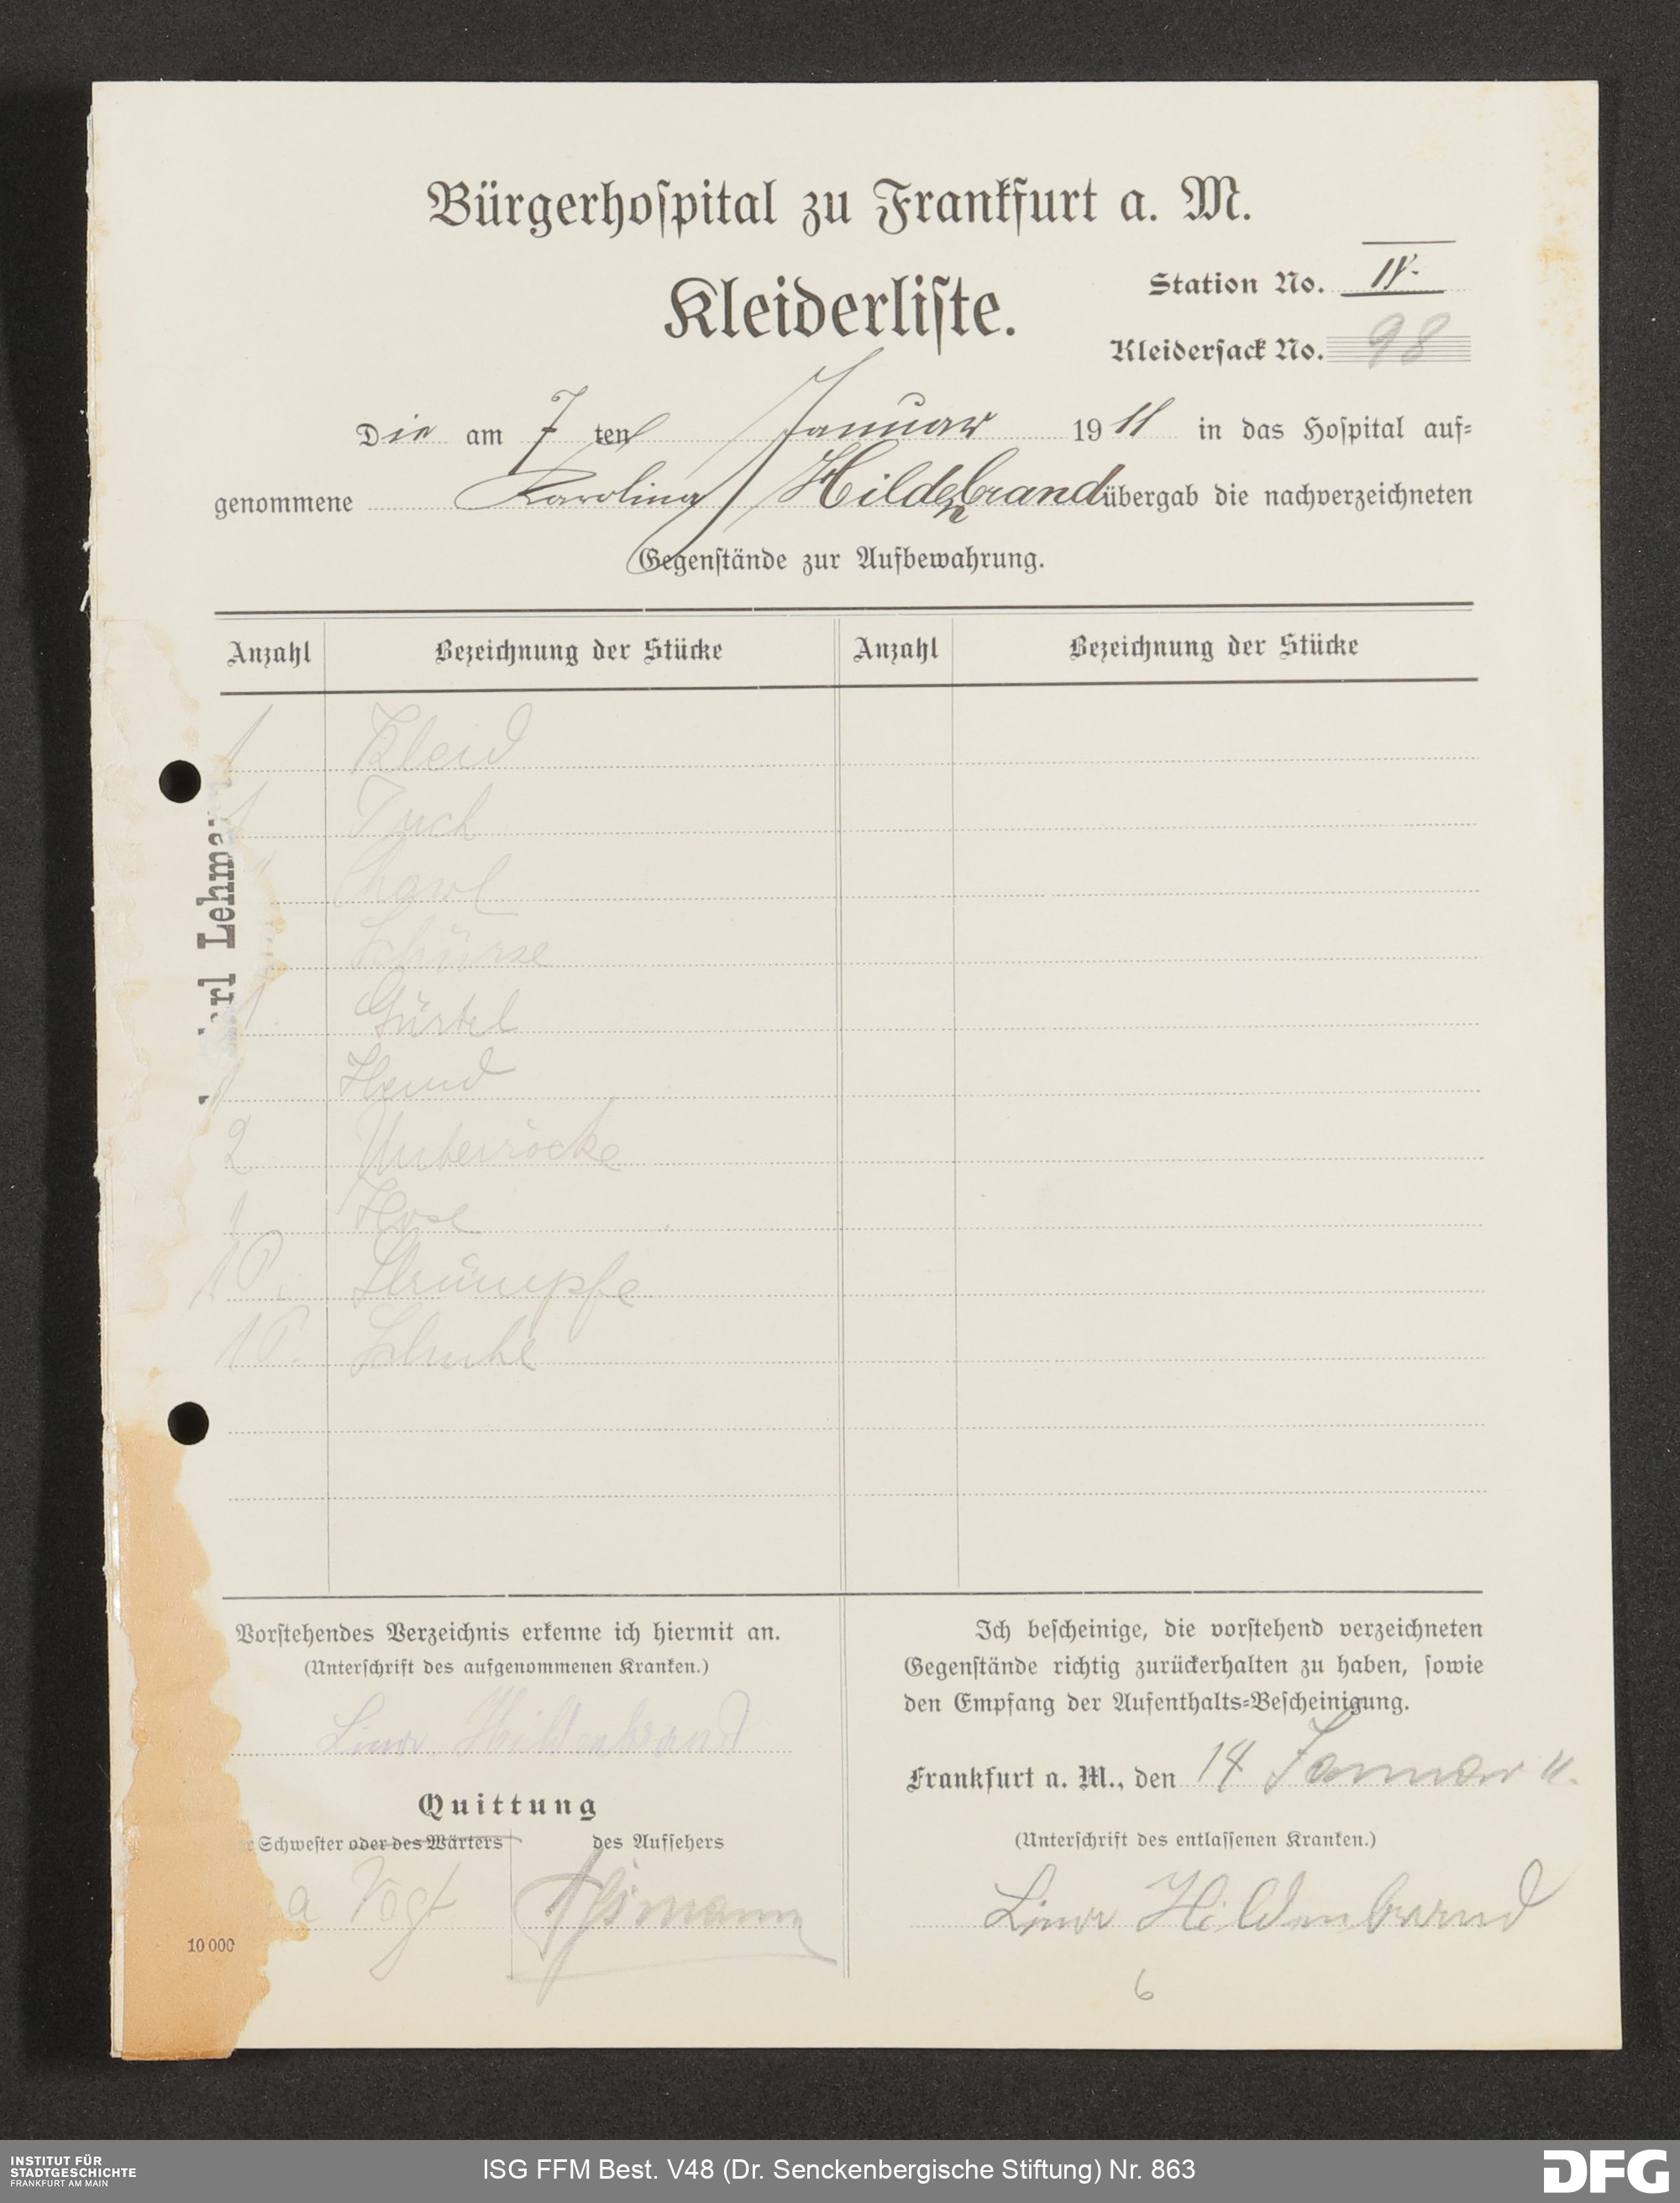 Bürgerhospital zu Frankfurt a. M.
Kleiderliste.
Station No. IV.
Kleidersack No. 98
Die am 7 ten Januar 1911 in das Hospital auf-
genommene Karolina Hildenbrand übergab die nachverzeichneten
Gegenstände zur Aufbewahrung.
Anzahl Bezeichnung der Stücke Anzahl Bezeichnung der Stücke
1 Kleid
1 Tuch
1 Shawl
Schürze
1 Gürtel
1 Hemd
2 Unterröcke
1 Hose
1 P. Strümpfe
1 P. Schuhe
Karl Lehma
Vorstehendes Verzeichnis erkenne ich hiermit an.
(Unterschrift des aufgenommenen Kranken.)
Lina Hildenbrand
Quittung
Schwester oder des Wärters des Aufsehers
a Vogt
10 000
Ich bescheinige, die vorstehend verzeichneten
Gegenstände richtig zurückerhalten zu haben, sowie
den Empfang der Aufenthalts-Bescheinigung.
Frankfurt a. M., den 14 Januar 11.
(Unterschrift des entlassenen Kranken.)
Lina Hildenbrand
6
INSTITUT FÜR
STADTGESCHICHTE
FRANKFURT AM MAIN
ISG FFM Best. V48 (Dr. Senckenbergische Stiftung) Nr. 863
DFG